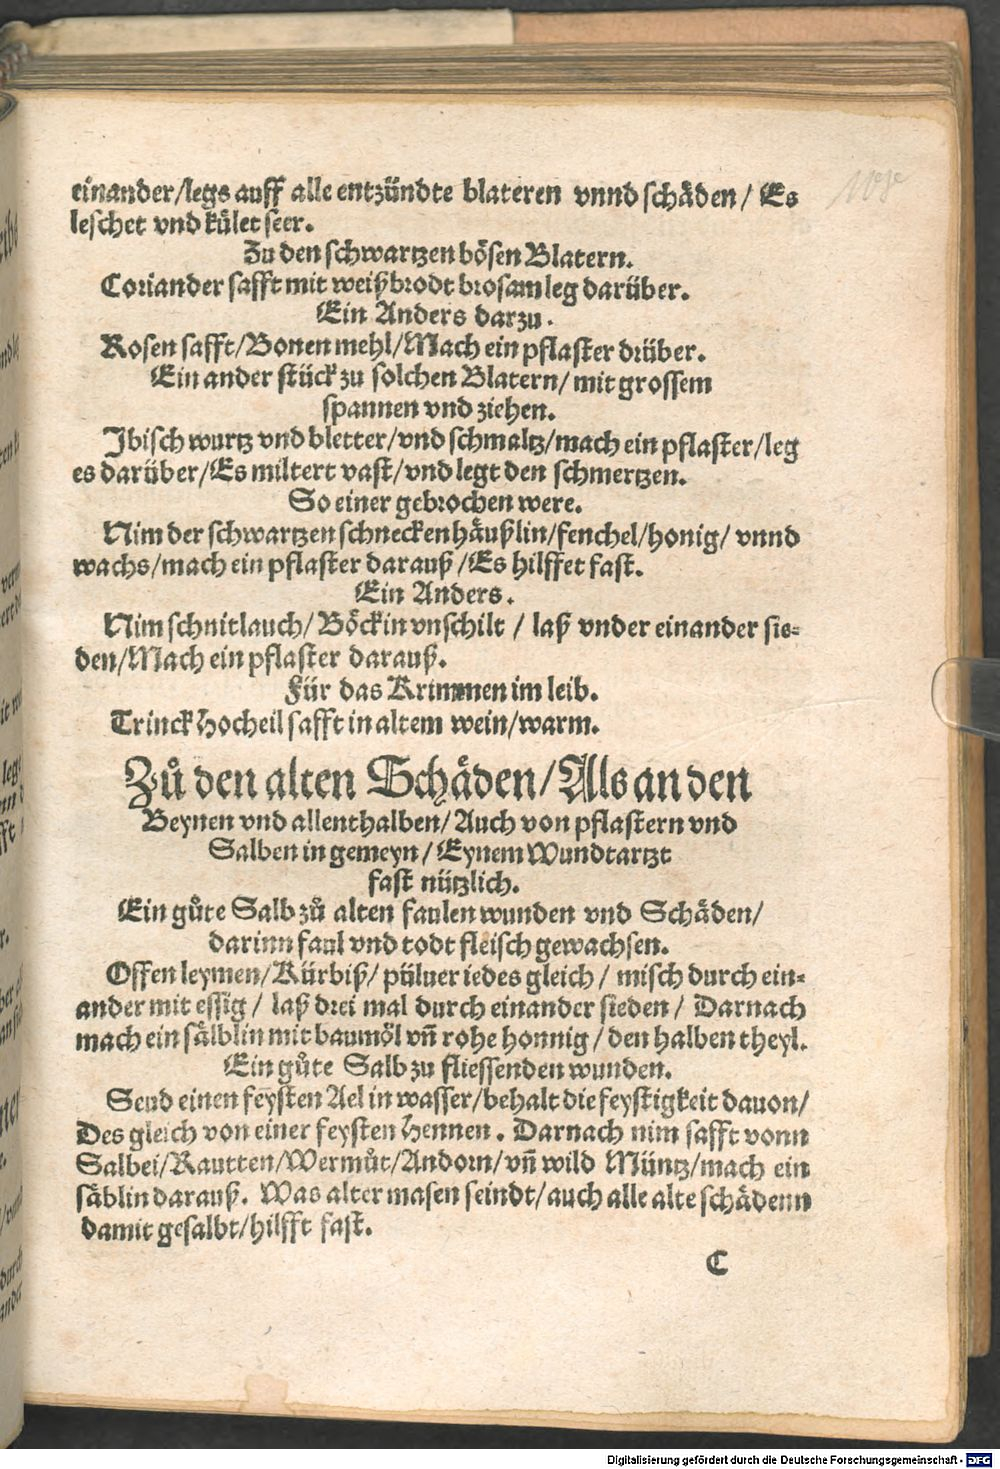 einander/legs auff alle entzündte blateren vnnd schäden/ Es
leschet vnd kület seer.
Zu den schwartzen bösen Blatern.
Coriander safft mit weißbrodt brosam leg darüber.
Ein Anders darzu.
Rosen safft/Bonen mehl/Mach ein pflaster drüber.
Ein ander stück zu solchen Blatern/ mit grossem
spannen vnd ziehen.
Jbisch wurtz vnd bletter/vnd schmaltz/mach ein pflaster/leg
es darüber/Es miltert vast/vnd legt den schmertzen.
So einer gebrochen were.
Nim der schwartzen schneckenhäußlin/fenchel/honig/ vnnd
wachs/mach ein pflaster darauß/Es hilffet fast.
Ein Anders.
Nim schnitlauch/Böckin vnschilt / laß vnder einander sie-
den/Mach ein pflaster darauß.
Für das Krimmen im leib.
Trinck Hocheil safft in altem wein/warm.
Zů den alten Schäden/Als an den
Beynen vnd allenthalben/Auch von pflastern vnd
Salben in gemeyn/Eynem Wundtartzt
fast nützlich.
Ein gůte Salb zů alten faulen wunden vnd Schäden/
darinn faul vnd todt fleisch gewachsen.
Offen leymen/Kürbiß/ püluer iedes gleich / misch durch ein-
ander mit essig / laß drei mal durch einander sieden / Darnach
mach ein sälblin mit baumöl vn̄ rohe honnig/den halben theyl.
Ein gůte Salb zu fliessenden wunden.
Seud einen feysten Ael in wasser/behalt die feystigkeit dauon/
Des gleich von einer feysten Hennen. Darnach nim safft vonn
Salbei/Rautten/Wermůt/Andorn/vn̄ wild Müntz/mach ein
säblin darauß. Was alter masen seindt/auch alle alte schädenn
damit gesalbt/hilfft fast.
C
Digitalisierung gefördert durch die Deutsche Forschungsgemeinschaft - DFG